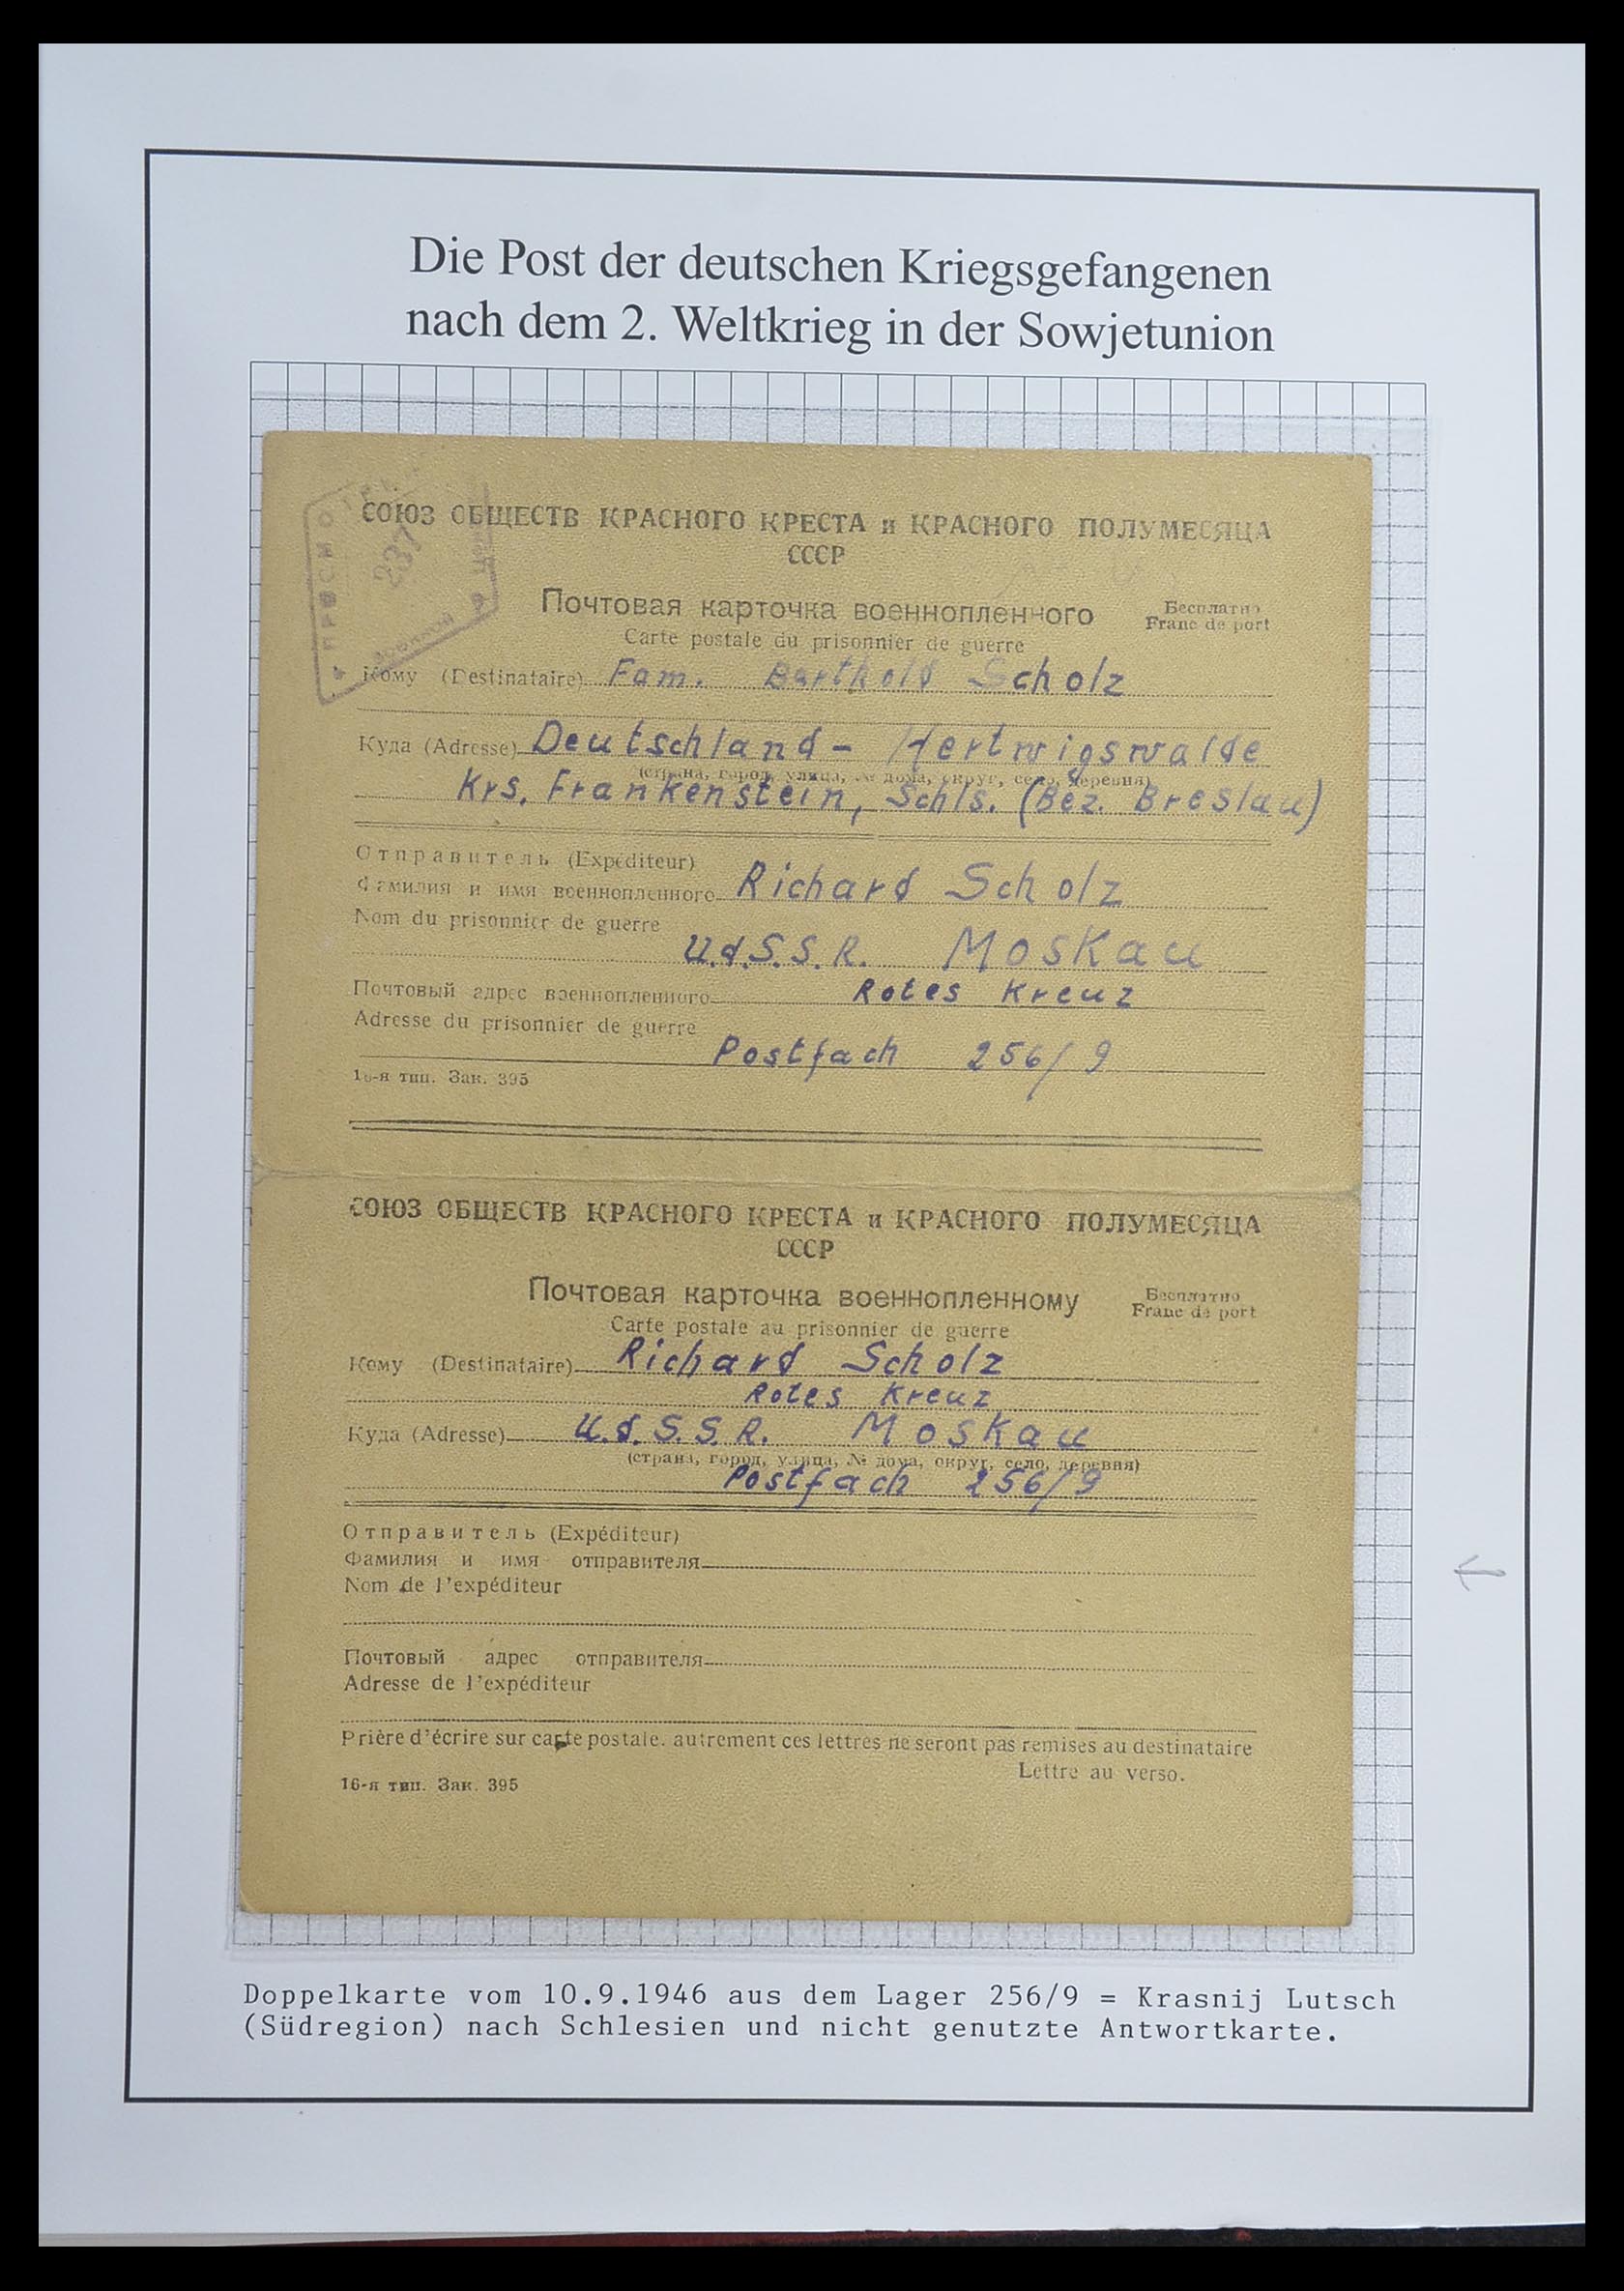 Die Post der deutschen Kriegsgefangenen
nach dem 2. Weltkrieg in der Sowjetunion
СОЮЗ ОБЩЕСТВ КРАСНОГО КРЕСТА и КРАСНОГО ПОЛУМЕСЯЦА
СССР
Почтовая карточка военнопленного
Бесплатно
Franc de port
Carte postale du prisonnier de guerre
Кому (Destinataire) Fam. Barthold Scholz
Куда (Adresse) Deutschland - Hertwigswalde
(страна, город, улица, № дома, округ, село, деревня)
Krs. Frankenstein, Schls. (Bez. Breslau)
Отправитель (Expéditeur)
Фамилия и имя военнопленного Richard Scholz
Nom du prisonnier de guerre
U.d.S.S.R. Moskau
Почтовый адрес военнопленного Rotes Kreuz
Adresse du prisonnier de guerre
Postfach 256/9
16-я тип. Зак. 395
СОЮЗ ОБЩЕСТВ КРАСНОГО КРЕСТА и КРАСНОГО ПОЛУМЕСЯЦА
СССР
Почтовая карточка военнопленному
Бесплатно
Franc de port
Carte postale au prisonnier de guerre
Кому (Destinataire) Richard Scholz
Rotes Kreuz
Куда (Adresse) U.d.S.S.R. Moskau
(страна, город, улица, № дома, округ, село, деревня)
Postfach 256/9
Отправитель (Expéditeur)
Фамилия и имя отправителя
Nom de l'expéditeur
Почтовый адрес отправителя
Adresse de l'expéditeur
Prière d'écrire sur carte postale. autrement ces lettres ne seront pas remises au destinataire
Lettre au verso.
16-я тип. Зак. 395
Doppelkarte vom 10.9.1946 aus dem Lager 256/9 = Krasnij Lutsch
(Südregion) nach Schlesien und nicht genutzte Antwortkarte.